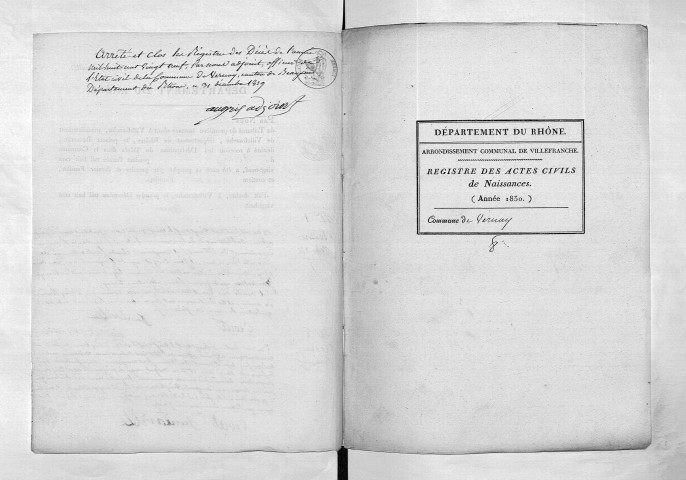 Arrêté et clos le Registre des Décès de l'année
mil huit cent vingt neuf. Par nous adjoint, officier de
l'état civil de la Commune de Vernay, canton de Beaujeu
Département du Rhône, ce 31 décembre 1829
adjoint
DÉPARTEMENT DU RHÔNE.
ARRONDISSEMENT COMMUNAL DE VILLEFRANCHE.
REGISTRE DES ACTES CIVILS
de Naissances.
( Année 1830. )
Commune de Vernay